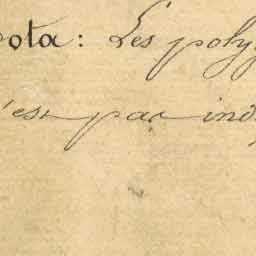 ota: Les poly
'est pas ind